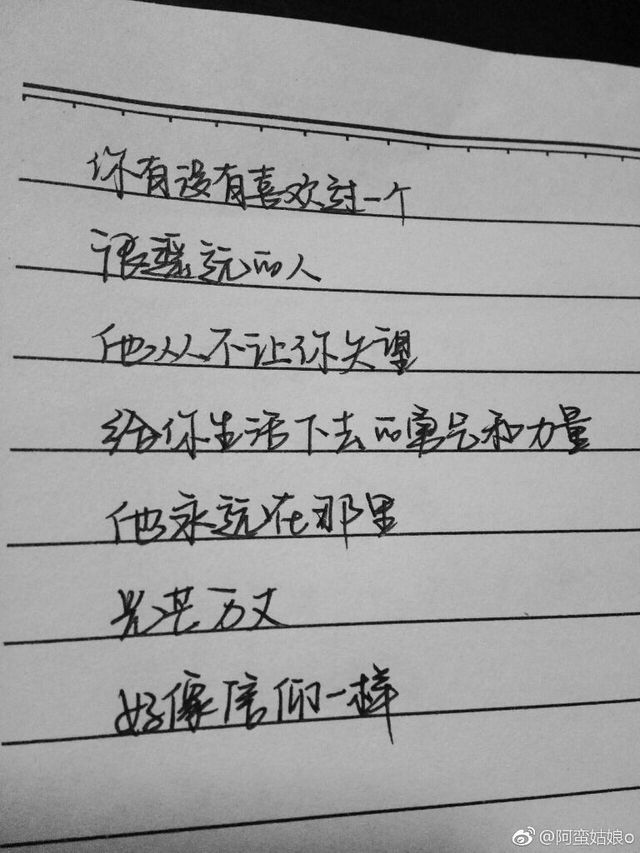 你有没有喜欢过一个
很遥远的人
他从不让你失望
给你生活下去的勇气和力量
他永远在那里
光芒万丈
好像信仰一样
@阿蛮姑娘o